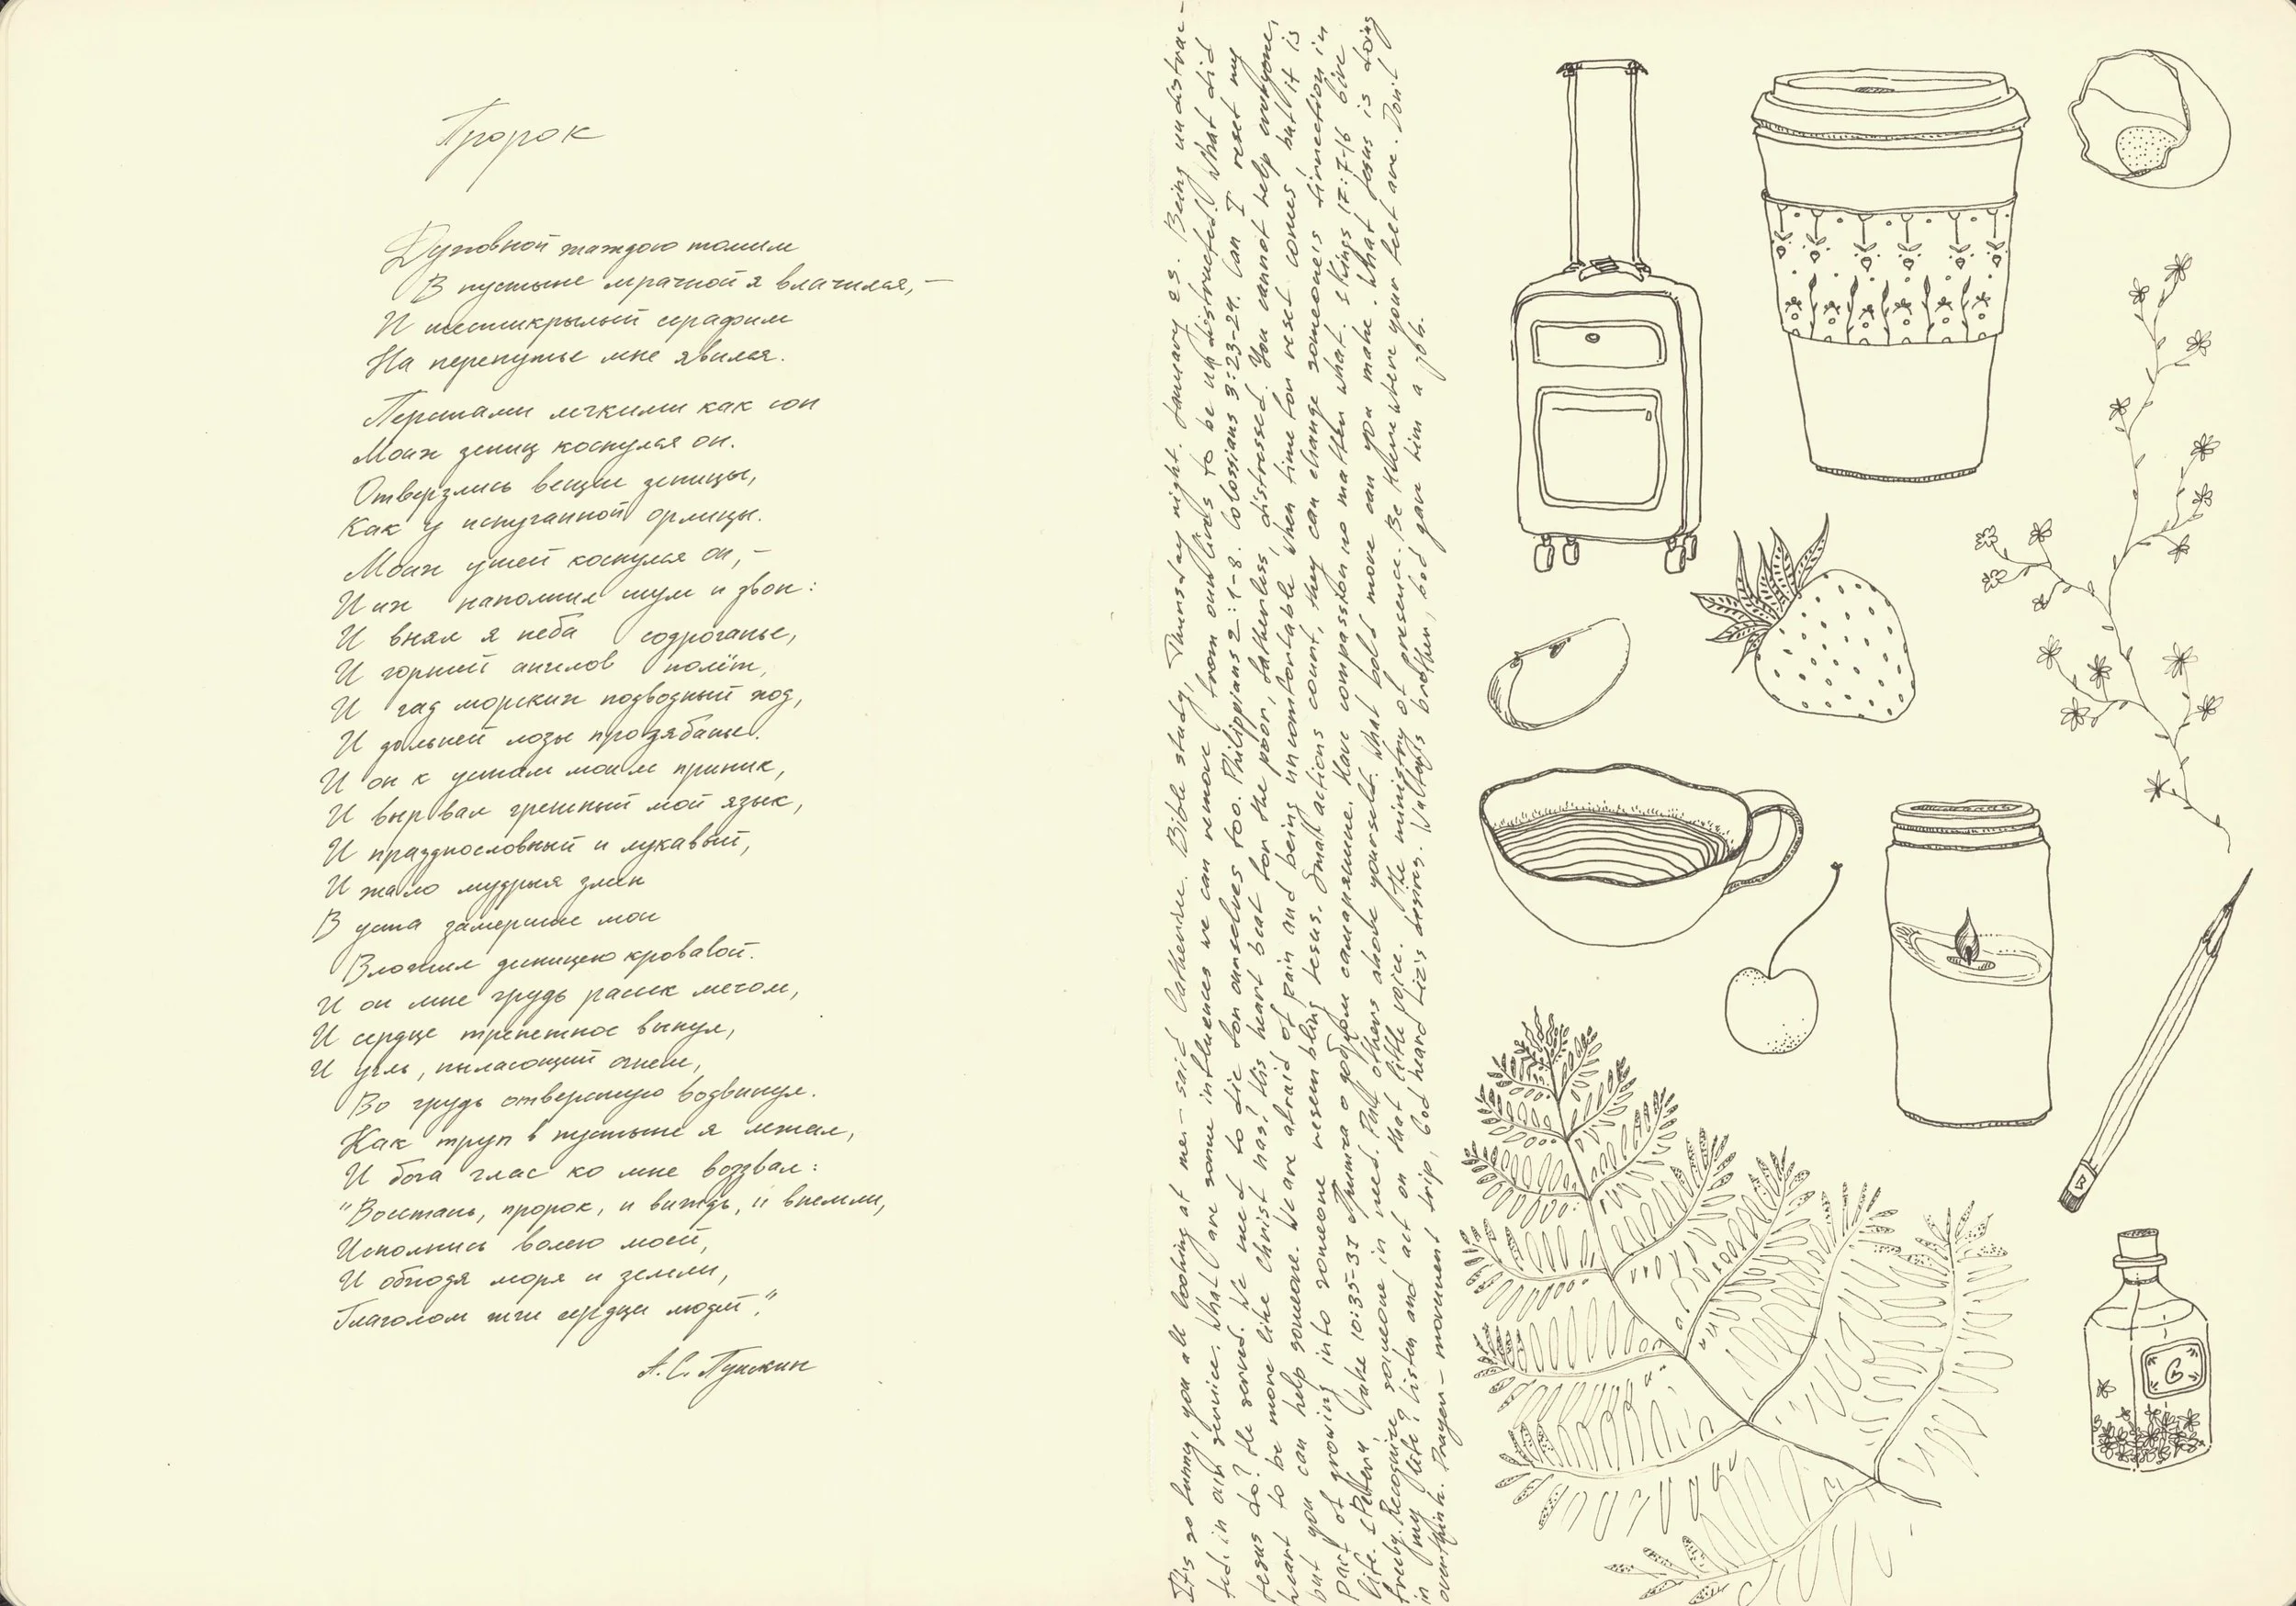 Пророк
Духовной жаждою томим
В пустыне мрачной я влачился, –
И шестикрылый серафим
На перепутье мне явился.
Перстами легкими как сон
Моих зениц коснулся он.
Отверзлись вещие зеницы,
Как у испуганной орлицы.
Моих ушей коснулся он, –
И их наполнил шум и звон:
И внял я неба содроганье,
И горний ангелов полёт,
И гад морских подводный ход,
И дольней лозы прозябанье.
И он к устам моим приник,
И вырвал грешный мой язык,
И празднословный и лукавый,
И жало мудрыя змеи
В уста замершие мои
Вложил десницею кровавой.
И он мне грудь рассек мечом,
И сердце трепетное вынул,
И угль, пылающий огнем,
Во грудь отверстую водвинул.
Как труп в пустыне я лежал,
И бога глас ко мне воззвал:
"Восстань, пророк, и виждь, и внемли,
Исполнись волею моей,
И обходя моря и земли,
Глаголом жги сердца людей."
А. С. Пушкин
It's so funny, you all looking at me – said Catherine. Bible study, Thursday night. January 23. Being undistrac-
ted in our service. What are some influences we can remove from our lives to be undistructed? What did
Jesus do? He served. We need to die for ourselves too. Philippians 2:1-8. Colossians 3:23-24. Can I reset my
heart to be more like Christ has? His heart beat for the poor, fatherless, distressed. You cannot help everyone,
but you can help someone. We are afraid of pain and being uncomfortable. When time for reset comes, but it is
part of growing into someone resembling Jesus. Small actions count, they can change someone's direction in
life. 1 Peter 4 Luke 10:35-37 Притча о добром самарянине. Have compassion no matter what. 1 Kings 17:7-16 Give
freely. Recognize someone in need. Put others above yourself. What bold move can you make. What Jesus is doing
in my life? Listen and act on that little voice. The ministry of presence. Be there where your feet are. Don't
overthink. Prayer – movement trip, God heard Liz's desires. Walter's brother, God gave him a job.
G